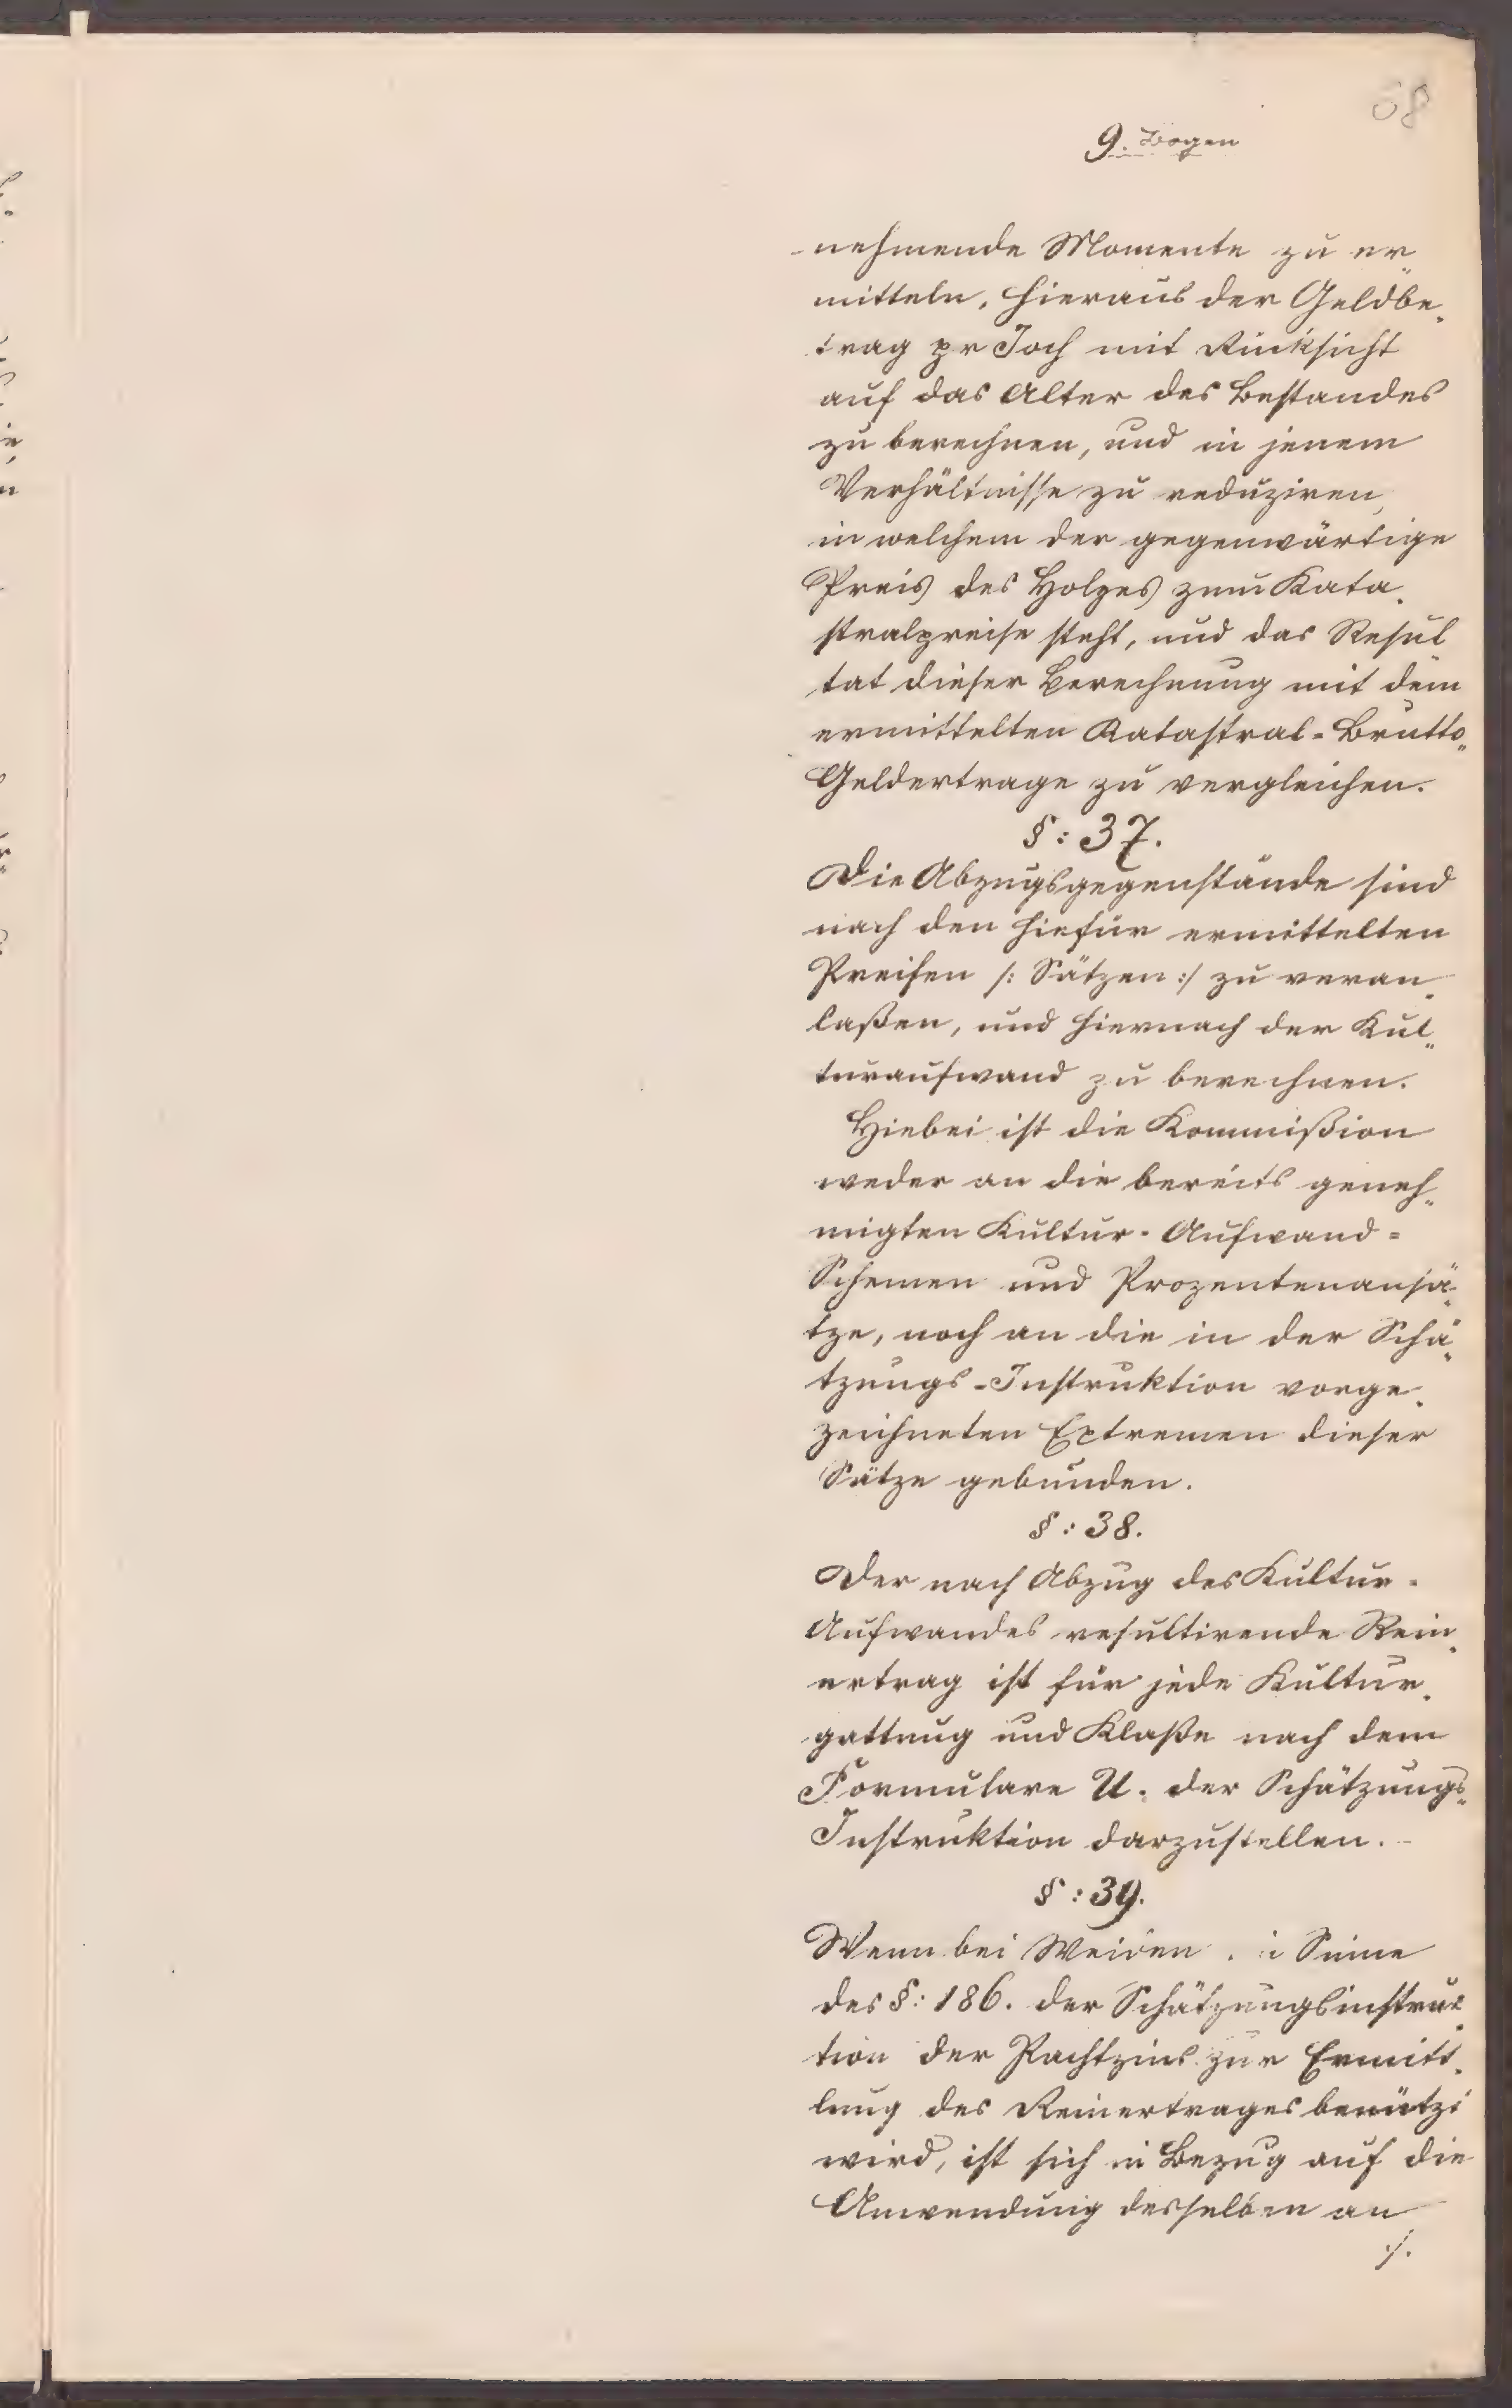 58
9. Bogen
-nehmende Momente zu er„
mitteln, hieraus der Geldbe„
trag pr Joch mit Rücksicht
auf das Alter des Bestandes
zu berechnen, und in jenem
Verhältnisse zu reduziren,
in welchem der gegenwärtige
Preis des Holzes zum Kata„
stralpreise steht, und das Resul„
tat dieser Berechnung mit dem
ermittelten Katastral-Brutto„
Geldertrage zu vergleichen.
§: 37.
Die Abzugsgegenstände sind
nach den hiefür ermittelten
Preisen /: Sätzen :/ zu veran„
laßen, und hiernach der Kul„
turaufwand zu berechnen.
Hiebei ist die Kommißion
weder an die bereits geneh„
migten Kultur-Aufwand=
Schemen und Prozentenansä„
tze, noch an die in der Schä„
tzungs-Instruktion vorge„
zeichneten Extremen dieser
Sätze gebunden.
§: 38.
Der nach Abzug des Kultur=
Aufwandes resultirende Rein„
ertrag ist für jede Kultur„
gattung und Klaße nach dem
Formulare U. der Schätzungs„
Instruktion darzustellen.-
§: 39.
Wenn bei Weiden Sinne
des §: 186. der Schätzungsinstruk„
tion der Pachtzins zur Ermitt„
lung des Reinertrages benützt
wird, ist sich in Bezug auf die
Anwendung desselben an
./.